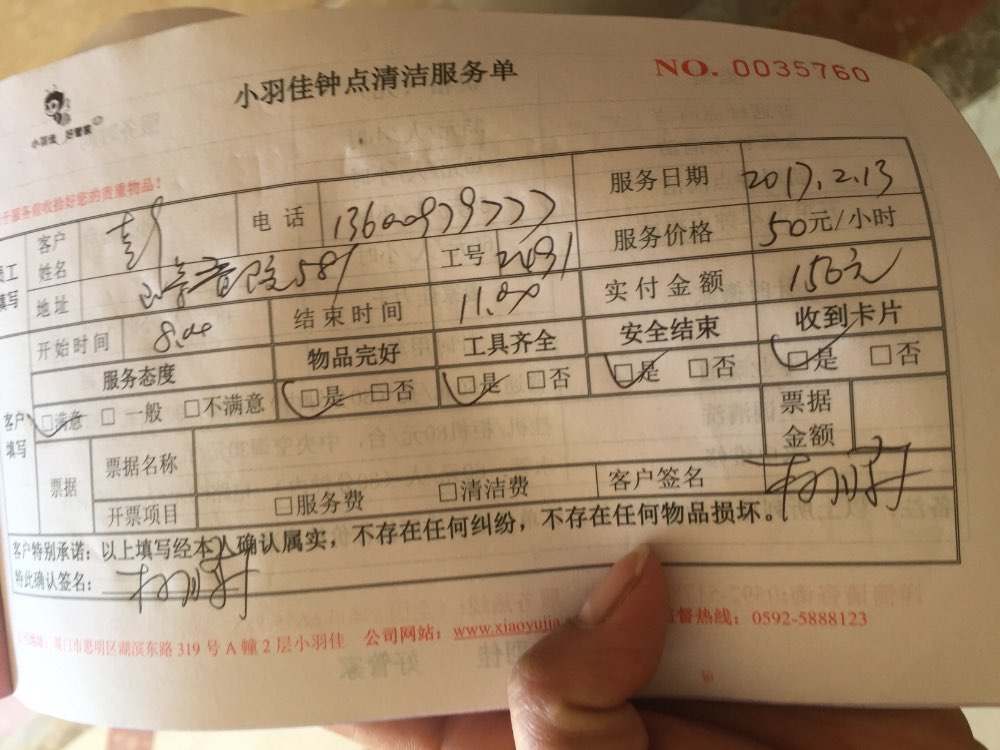 小羽佳钟点清洁服务单
NO. 0035760
小羽佳 好管家
服务前收拾好您的贵重物品！
客户姓名 电话 服务日期 2017.2.13
地址 581 工号 服务价格 50元/小时
开始时间 8.00 结束时间 11.00 实付金额 150元
服务态度 物品完好 工具齐全 安全结束 收到卡片
客户填写 □满意 □一般 □不满意 □是 □否 □是 □否 □是 □否 □是 □否
票据 票据名称 票据金额
开票项目 □服务费 □清洁费 客户签名
客户特别承诺：以上填写经本人确认属实，不存在任何纠纷，不存在任何物品损坏。
特此确认签名：
厦门市思明区湖滨东路 319 号 A 幢 2 层小羽佳 公司网站：www.xiaoyujia 监督热线：0592-5888123